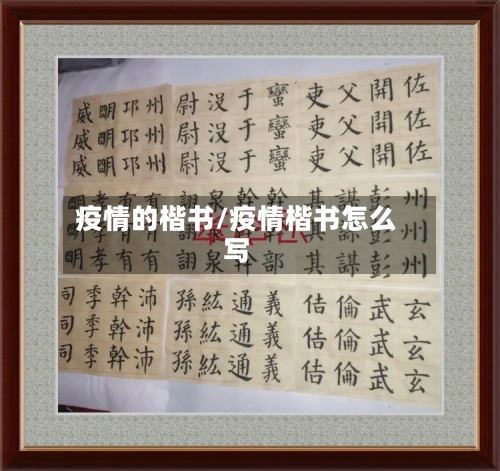 威明邛州 尉没于蠻 吏父開佐
威明邛州 尉没于蠻 吏父開佐
威明邛州 尉没于蠻 吏父開佐
明孝有有 詡泉幹幹 其謀彭州
疫情的楷书/疫情楷书怎么
写
明孝有有 詡泉幹部 其謀彭州
司季幹沛 孫紘通義 佸倫武玄
司季幹沛 孫紘通義 佸倫武玄
司季幹沛 孫紘通義 佸倫武玄